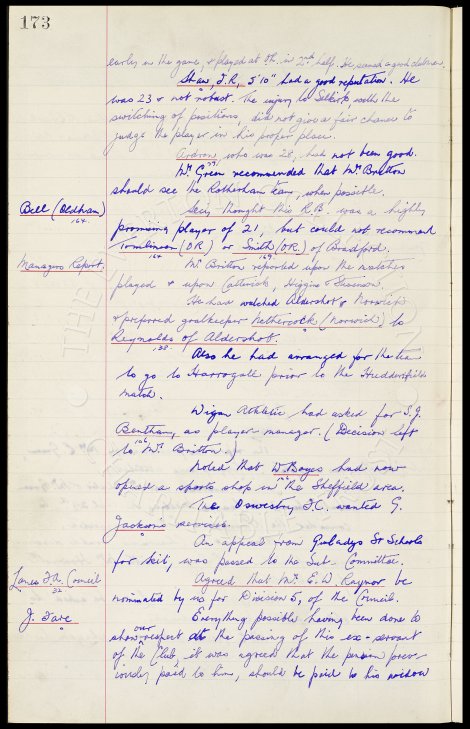 173
early in the game, & played at O.L. in 2nd half. He saved a good
Shaw, J.R., 5'10" had a good reputation. He
was 23 & not robust. The injury to with the
switching of positions, did not give a fair chance to
judge the player in his proper place.
Ardron, who was 28, had not been good.
Mr Green recommended that Mr Britton
should see the Rotherham team, when possible.
Bell (Oldham)
164.
thought this R.B. was a highly
promising player of 21, but could not recommend
Tomlinson (O.R.) or Smith (O.R.) of Bradford.
164 169.
Managers Report.
Mr Britton reported upon the matches
played & upon Catterick, Higgins &
He had watched Aldershot & Norwich
& preferred goalkeeper Nethercock (Norwich) to
Reynolds of Aldershot.
138.
Also he had arranged for the team
to go to Harrogate prior to the Huddersfield
match.
Wigan Athletic had asked for S.J.
Bentham, as player-manager. (Decision left
to Mr. Britton.
Noted that W. Boyes had now
opened a sports shop in the Sheffield area.
The Oswestry F.C. wanted G.
Jackson's services.
An appeal from Guladys St Schools
for kit, was passed to the Sub-Committee.
Lancs F.A. Council
22
Agreed that Mr. E.W. Raynor be
nominated by us for Division 5, of the Council.
J. Tare
Everything possible having been done to
show our respect at the passing of this ex-servant
of the Club, it was agreed that the pension prev-
iously paid to him, should be paid to his widow